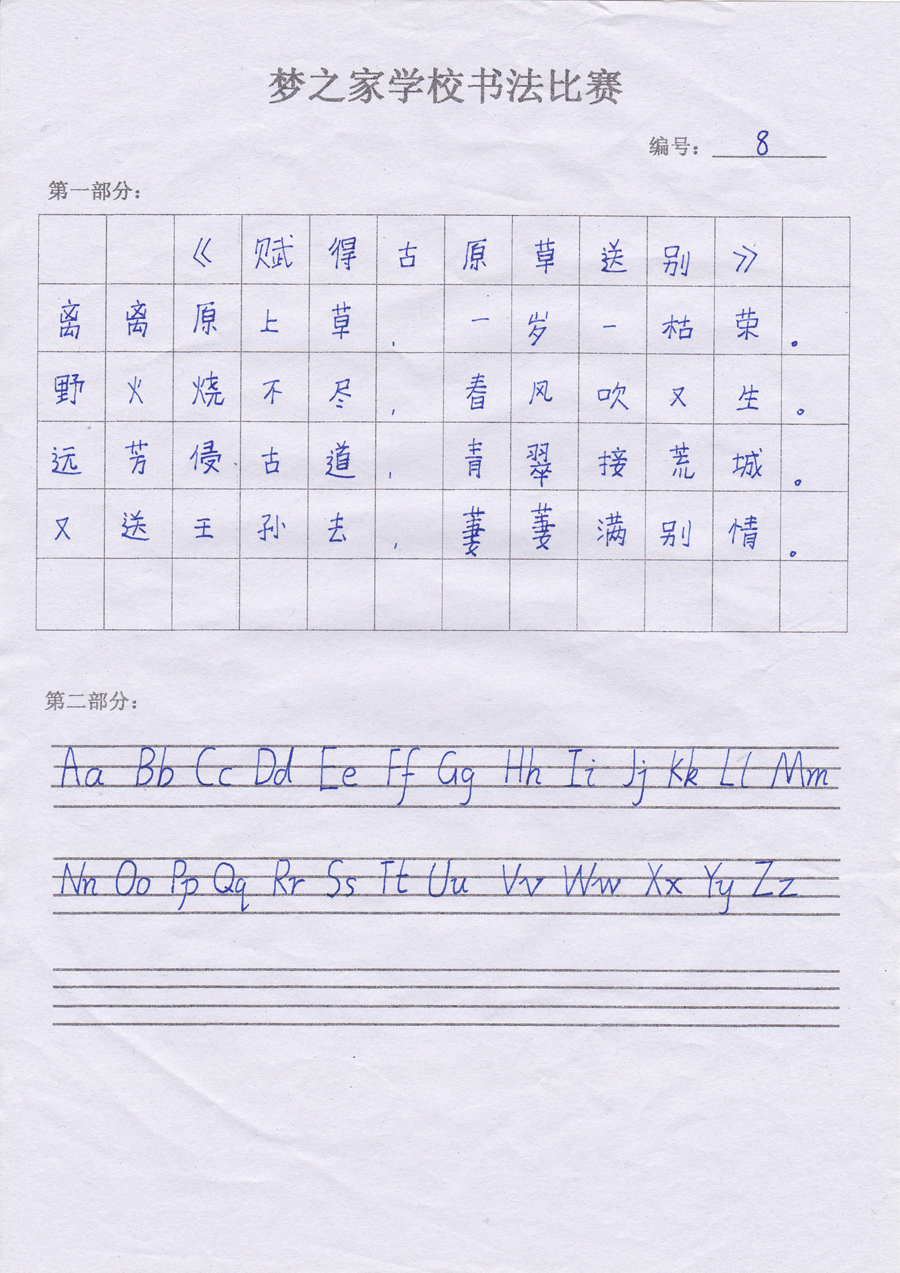 梦之家学校书法比赛
编号：8
第一部分：
《赋得古原草送别》
离离原上草，一岁一枯荣。
野火烧不尽，春风吹又生。
远芳侵古道，青翠接荒城。
又送王孙去，萋萋满别情。
第二部分：
Aa Bb Cc Dd Ee Ff Gg Hh Ii Jj Kk Ll Mm
Nn Oo Pp Qq Rr Ss Tt Uu Vv Ww Xx Yy Zz